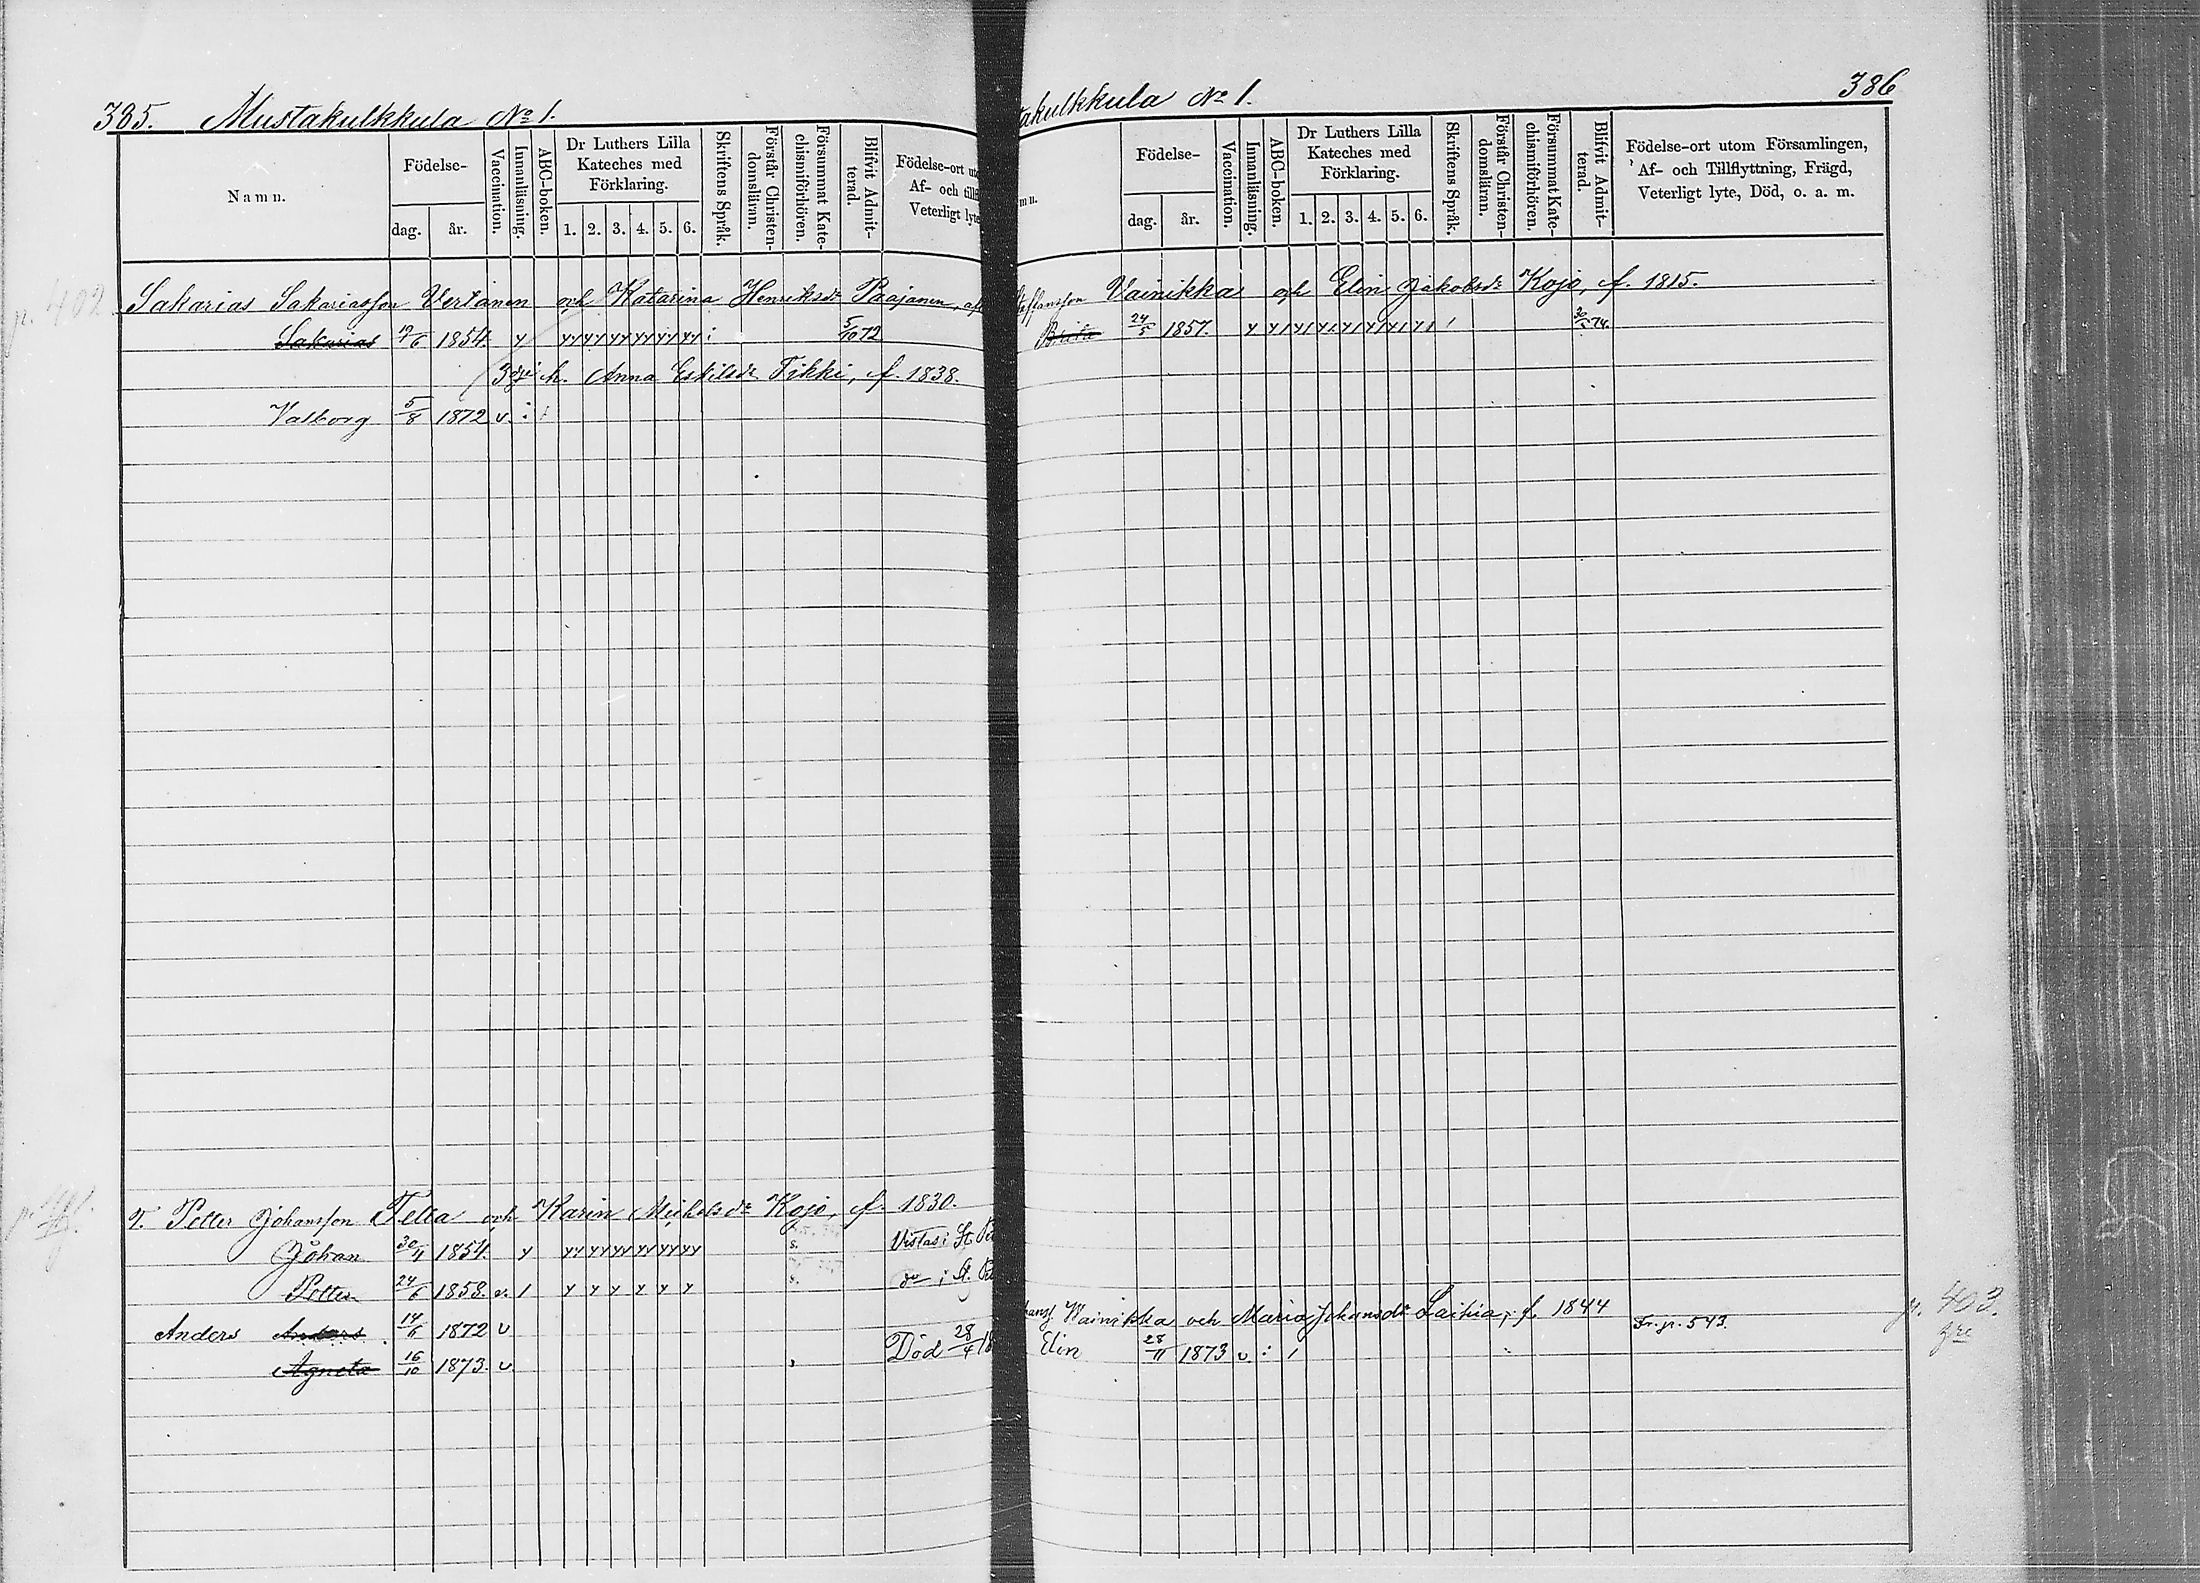 385. Mustakulkkula No 1.
Namn.
Födelse-
dag.
år.
Vaccination.
Innanläsning.
ABC-boken.
Dr Luthers Lilla
Kateches med
Förklaring.
1. 2. 3. 4. 5. 6.
Skriftens Språk.
Förstår Christen-
domsläran.
Försummat Kate-
chismiförhören.
Blifvit Admit-
terad.
Födelse-ort ut
Af- och till
Veterligt lyte
p. 402
Sakarias Sakariasson Vertanen och Katarina Henriksdr Paajanen,
Sakarias 1854. y yy yy yy yy yy yy : 5/10 72
3dje h. Anna Eskilsdr Tikki, f. 1838.
Valborg 5/8 1872 v. : :
T. Petter Johansson Tella och Karin Michelsdr Kojo, f. 1830.
Johan 30/11 1854. y yy yy yy yy yy yy s. Vistas i St. Pe
Petter 24/6 1858. v. 1 y y y y y y s. do i St. Pe
Anders Anders 14/6 1872 v
Agneta 16/10 1873. v. Död 28/4 18
takulkkula No 1. 386
mn.
Födelse-
dag.
år.
Vaccination.
Innanläsning.
ABC-boken.
Dr Luthers Lilla
Kateches med
Förklaring.
1. 2. 3. 4. 5. 6.
Skriftens Språk.
Förstår Christen-
domsläran.
Försummat Kate-
chismiförhören.
Blifvit Admit-
terad.
Födelse-ort utom Församlingen,
Af- och Tillflyttning, Frägd,
Veterligt lyte, Död, o. a. m.
Steffansson Vainikka och Elin Jakobsdr Kojo, f. 1815.
Brita 24/5 1857.
Wainikka och Maria Johansdr Laitia, f. 1844 Fr. p. 543. p. 403.
Elin 28/11 1873 v : 1